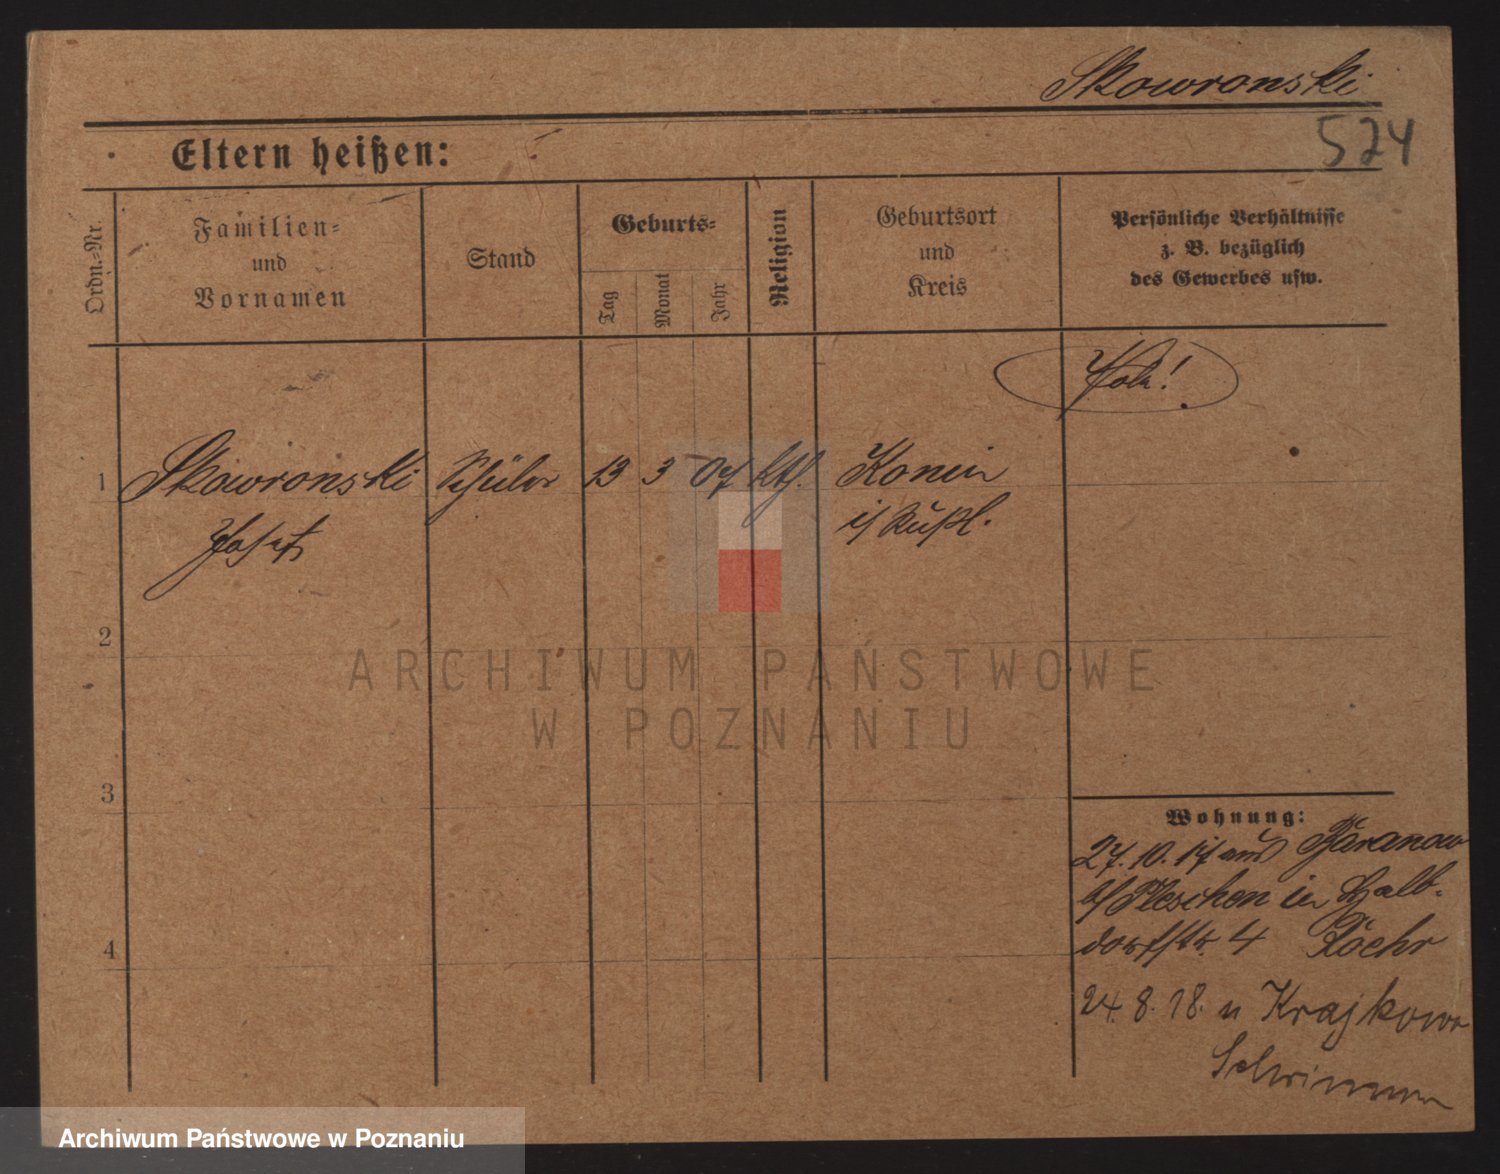 Skowronski
524
Eltern heißen:
Ordn.-Nr.
Familien-
und
Vornamen
Stand
Geburts-
Tag
Monat
Jahr
Religion
Geburtsort
und
Kreis
Persönliche Verhältnisse
z. B. bezüglich
des Gewerbes usw.
1
Skowronski
Josef
Schüler
13
3
07
kth.
Konin
i/ Rußl.
2
3
4
Wohnung:
27.10.17 aus Baranow
b/ Pleschen in Halb-
dorfstr. 4
24.8.18. n Krajkowo
ARCHIWUM PAŃSTWOWE
W POZNANIU
Archiwum Państwowe w Poznaniu